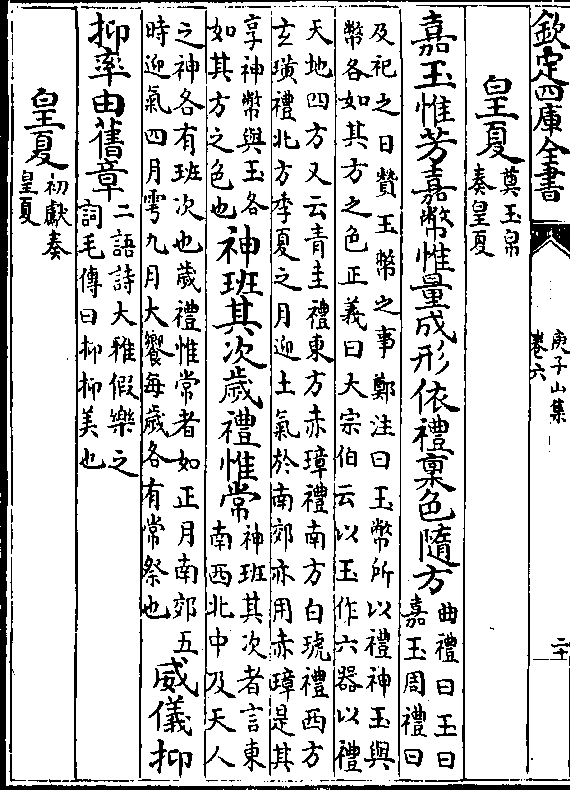 欽定四庫全書
庾子山集
卷六
二十
皇夏
奠玉帛
奏皇夏
嘉玉惟芳嘉幣惟量成形依禮稟色隨方
曲禮曰玉曰
嘉玉周禮曰
及祀之日贊玉幣之事鄭注曰玉幣所以禮神玉與
幣各如其方之色正義曰大宗伯云以玉作六器以禮
天地四方又云青圭禮東方赤璋禮南方白琥禮西方
玄璜禮北方季夏之月迎土氣於南郊亦用赤璋是其
享神幣與玉各
如其方之色也
神班其次歲禮惟常
神班其次者言東
南西北中及天人
之神各有班次也歲禮惟常者如正月南郊五
時迎氣四月雩九月大饗每歲各有常祭也
威儀抑
抑率由舊章
二語詩大雅假樂之
詞毛傳曰抑抑美也
皇夏
初獻奏
皇夏